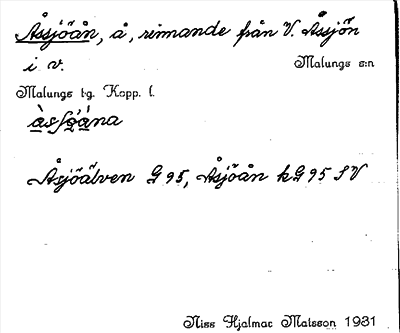 Åssjöån, å, rinnande från V. Åssjön
i v.
Malungs s:n
Malungs tg. Kopp. l.
Åsjöälven G 95, Åsjöån kG 95 SV
Niss Hjalmar Matsson 1931